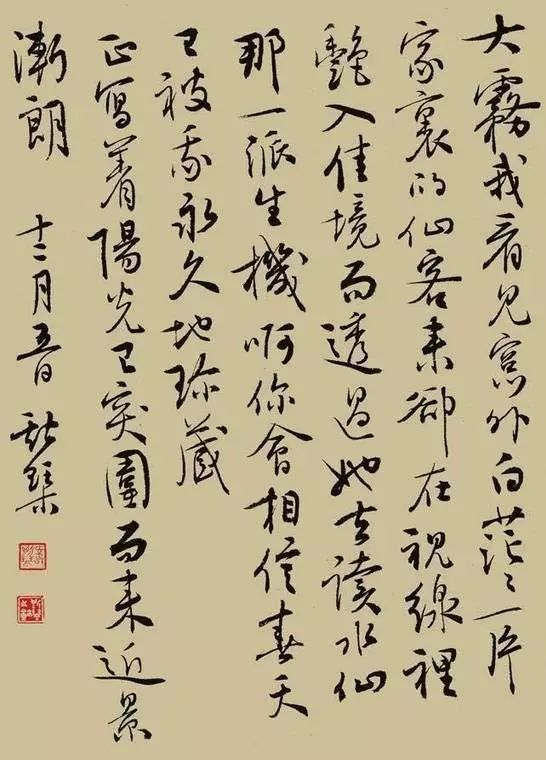 大霧我看見窗外白茫々一片
家裏的仙客來卻在視線裡
艷入佳境而透過她去讀水仙
那一派生機啊你會相信春天
已被我永久地珍藏
正寫着陽光已突圍而來近景
漸朗 十二月五日